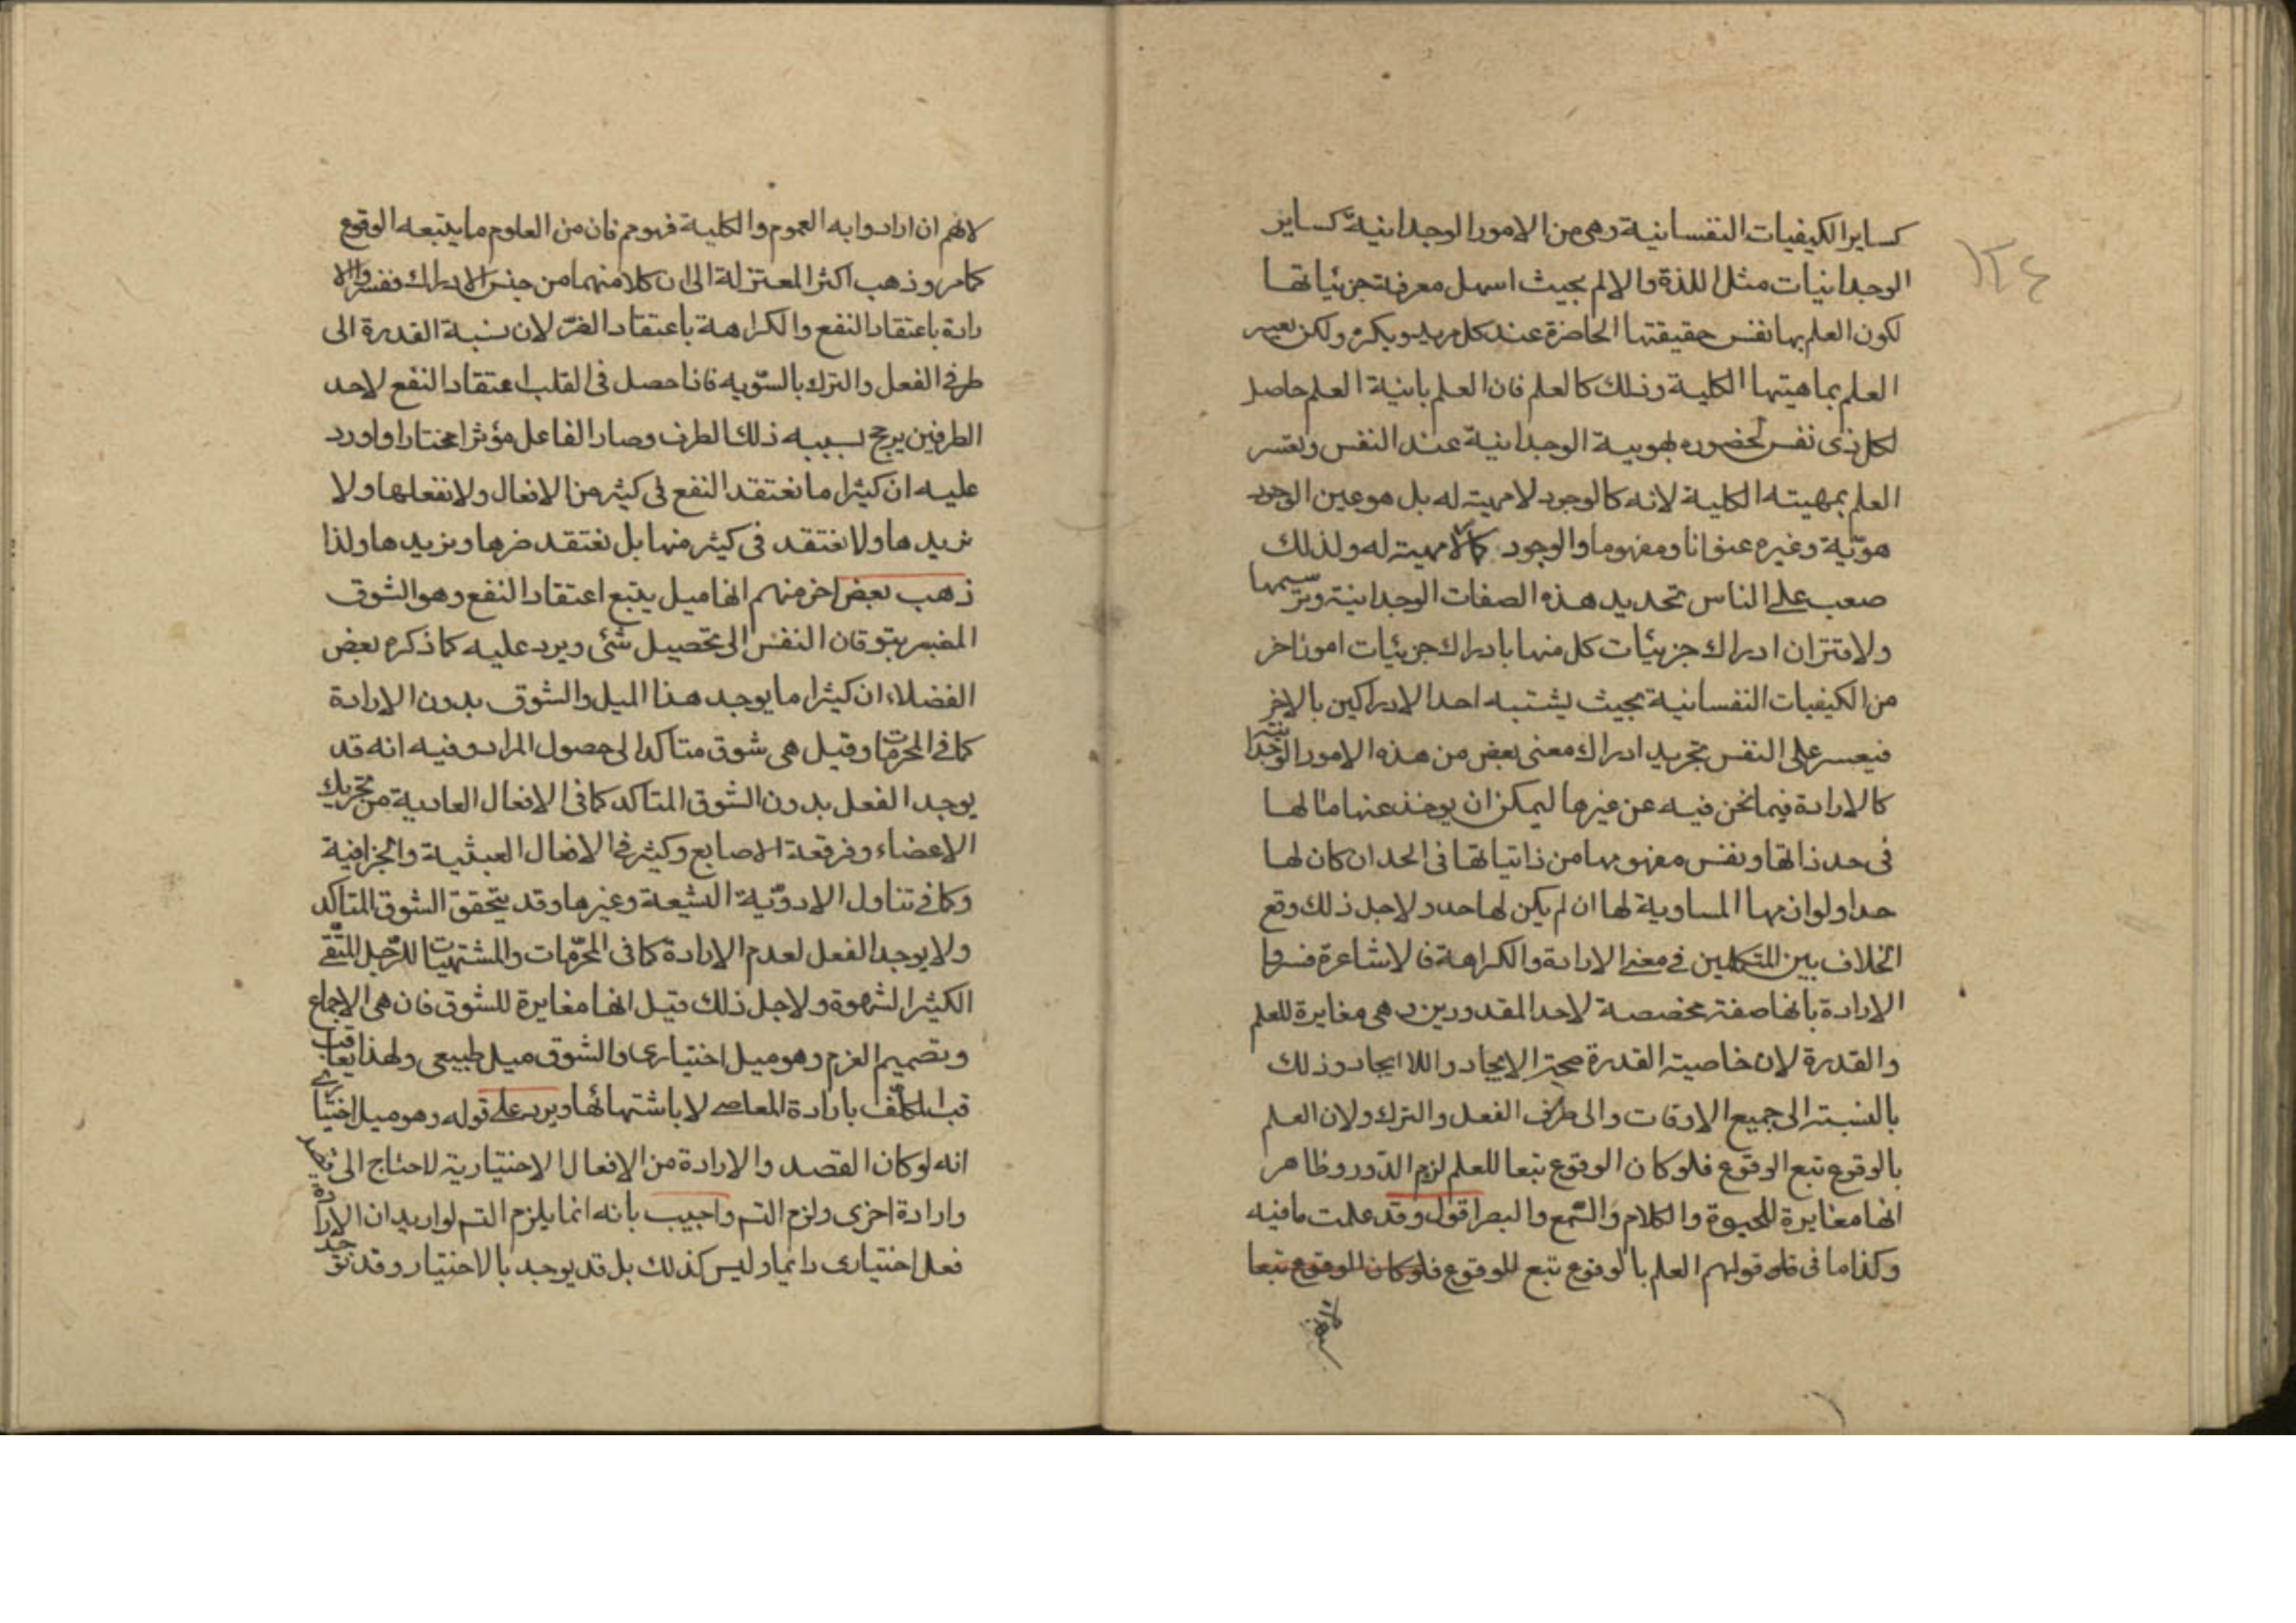 ١٣٤
كساير الكيفيات النفسانية وهى من الامور الوجدانية كساير
الوجدانيات مثل اللذة والالم بحيث اسهل معرفة جزئياتها
لكون العلم بها نفس حقيقتها الحاضرة عند كل مريد ويكره ولكن يعسر
العلم بماهيتها الكلية وذلك كالعلم فان العلم بانية العلم حاصل
لكل ذى نفس لحضوره بهويية الوجدانية عند النفس وتعسر
العلم بمهيته الكلية لانه كالوجود لا مهية له بل هو عين الوجود
هوّية وغيره عنوانا ومفهوما والوجود كلا مهية له ولذلك
صعب على الناس تحديد هذه الصفات الوجدانية وترسيمها
ولاقتران ادراك جزئيات كل منها بادراك جزئيات امور اخر
من الكيفيات النفسانية بحيث يشتبه احد الادراكين بالاخر
فيعسر على النفس تجريد ادراك معنى بعض من هذه الامور الوجدانية
كالارادة فيما نحن فيه عن غيرها ليمكن ان يوخذ عنها ما لها
فى حد ذاتها ونفس مفهومها من ذاتياتها فى الحد ان كان لها
حد اولوازمها المساوية لها ان لم يكن لها حد ولاجل ذلك وقع
الخلاف بين المتكلمين فى معنى الارادة والكراهة فالاشاعرة فسروا
الارادة بانها صفة مخصصة لاحد المقدورين وهى مغايرة للعلم
والقدرة لان خاصية القدرة صحة الايجاد واللا ايجاد وذلك
بالنسبة الى جميع الاوقات والى طرفى الفعل والترك ولان العلم
بالوقوع تبع الوقوع فلو كان الوقوع تبعا للعلم لزم الدور وظاهر
انها مغايرة للحيوة والكلام والسّمع والبصر اقول وقد علمت ما فيه
وكذا ما فى قولهم العلم بالوقوع تبع للوقوع فلو كان الوقوع تبعا
لانهم
لانهم ان ارادوا به العموم والكلية فهو مم فان من العلوم ما يتبعه الوقوع
كما مر وذهب اكثر المعتزلة الى ان كلا منهما من جنس الادراك ففسروا الا
رادة باعتقاد النفع والكراهة باعتقاد الضرّ لان نسبة القدرة الى
طرفى الفعل والترك بالسّويه فاذا حصل فى القلب اعتقاد النفع لاحد
الطرفين يرجح بسببه ذلك الطرف وصار الفاعل مؤثرا مختارا واورد
عليه ان كثيرا ما نعتقد النفع فى كثير من الافعال ولا نفعلها ولا
نريدها ولا نعتقد فى كثير منها بل نعتقد ضرها ونريدها ولذا
ذهب بعض اخر منهم انها ميل يتبع اعتقاد النفع وهو الشوق
المفسر بتوقان النفس الى تحصيل شئ ويرد عليه كما ذكره بعض
الفضلاء ان كثيرا ما يوجد هذا الميل والشوق بدون الارادة
كما فى المحرمات وقيل هى شوق متأكد الى حصول المراد وفيه انه قد
يوجد الفعل بدون الشوق المتأكد كما فى الافعال العادية من تحريك
الاعضاء وفرقعة الاصابع وكثير فى الافعال العبثية والجزافية
وكما فى تناول الادوّية البشيعة وغيرها وقد يتحقق الشوق المتأكد
ولا يوجد الفعل لعدم الارادة كما فى المحرّمات والمشتهيات للرّجل المتّقى
الكثير الشهوة ولاجل ذلك قيل انها مغايرة للشوق فان هى الاجماع
وتصميم العزم وهو ميل اختيارى والشوق ميل طبيعى ولهذا يعاقب
المكلّف بارادة المعاصى لا باشتهائها ويرد على قوله وهو ميل اختيارى
انه لو كان القصد والارادة من الافعال الاختيارية لاحتاج الى قصد
وارادة اخرى ولزم التس واجيب بانه انما يلزم التس لو اريد ان الارادة
فعل اختيارى دائما وليس كذلك بل قد يوجد بالاختيار وقد توجد